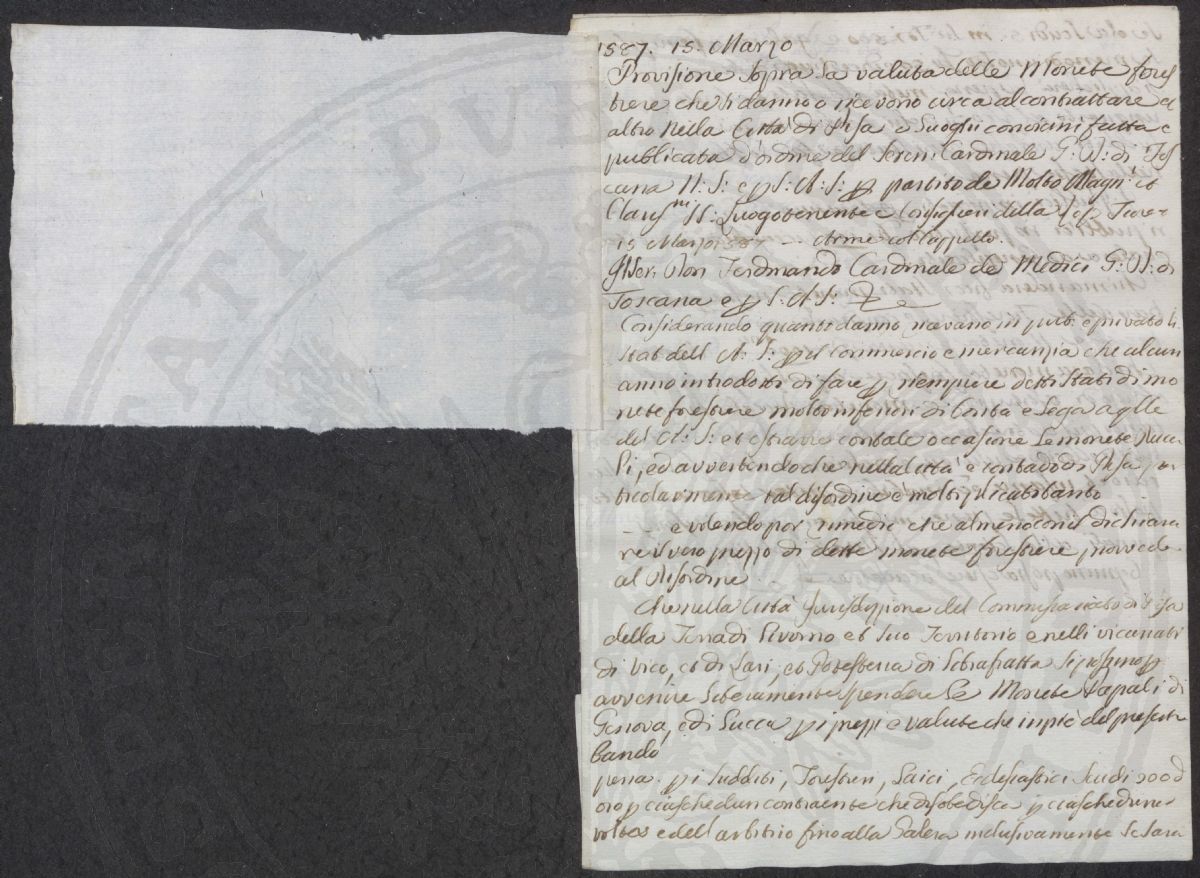 1587. 15. Marzo
Provisione sopra la valuta delle Monete fores
tiere che si danno o ricevono circa al contrattare et
altro nella Città di Pisa e Luoghi convicini fatta e
publicata d'ordine del Seren: Cardinale G: D: di Tos
cana N: S: e p S: A: S: p partito de Molto Magn:ci et
Claris:mi SS: Luogotenente e Consiglieri della
15 Marzo 1587 Arme col Cappello.
Il Ser: Don Ferdinando Cardinale de Medici G: D: di
Toscana e p S: A: S:
Considerando quanto danno ricevano in pub: e privato li
Stati dell A: S: p il commercio e mercanzia che alcuni
anno introdotti di fare p riempiere detti Stati di mo
nete forestiere molto inferiori di bontà e Lega a q'lle
di A: S: et estrarre con tale occasione le monete Duca
li, ed avvertendo che nella Città e contado di Pisa par
ticolarmente tal disordine è moltiplicatissimo
-- e volendo por rimedio che almeno con il dichiara
re il vero prezzo di dette monete forestiere provvede
al disordine
Che nella Città Jurisdizzione del Commissariato di Pisa
della Terra di Livorno et suo Territorio e nelli vicariati
di Vico, et di Lari, et Potesteria di Librafatta si possino p
avvenire liberamente spendere le Monete Papali di
Genova, e di Lucca p i prezzi e valute che in piè del presente
bando
pena p i sudditi, Forestieri, Laici, Ecclesiastici Scudi 200 d
oro p ciaschedun contraente che disobedisca p ciascheduna
volta e dell arbitrio fino alla Galera inclusivamente se sarà